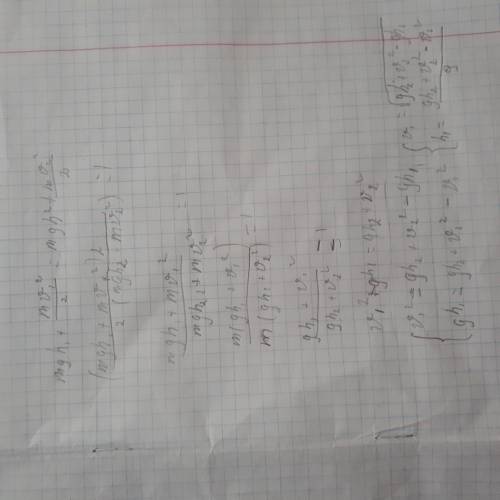 mgh₁ + mv₁²/2 = mgh₂ + mv₂²/2
(mgh₁ + mv₁²)2 / 2(mgh₂ + mv₂²) = 1
mgh₁ + mv₁² / mgh₂ + mv₂² = 1
m(gh₁ + v₁²) / m(gh₂ + v₂²) = 1
gh₁ + v₁² / gh₂ + v₂² = 1
v₁² + gh₁ = gh₂ + v₂²
{ v₁² = gh₂ + v₂² - gh₁ { v₁ = √gh₂ + v₂² - gh₁
{ gh₁ = gh₂ + v₂² - v₁² { h₁ = gh₂ + v₂² - v₁² / g